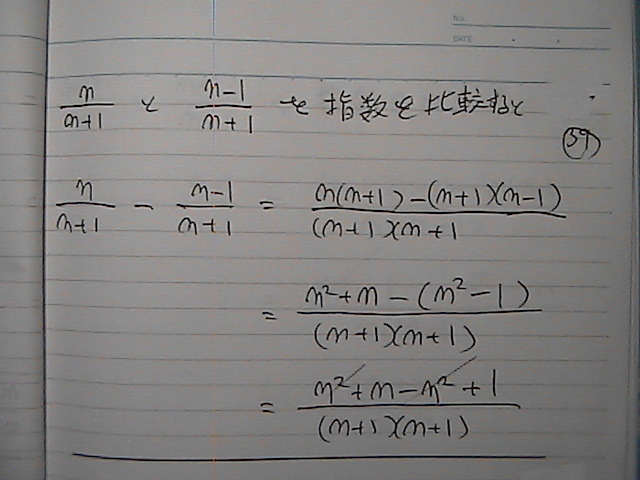 No.
DATE . .
n/(n+1) と (n-1)/(n+1) を 指数を比較すると
(59)
n/(n+1) - (n-1)/(n+1) = (n(n+1)-(n+1)(n-1))/((n+1)(n+1
= (n²+n-(n²-1))/((n+1)(n+1))
= (n²+n-n²+1)/((n+1)(n+1))